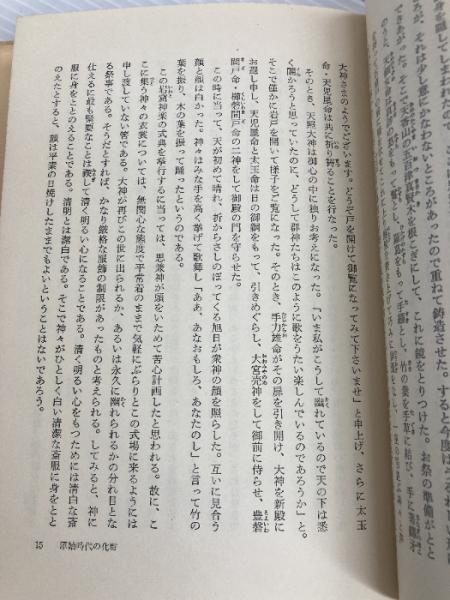 身を隠してしまわれたの
ろが、それは少し意にかなわないところがあったので重ねて鋳造させた。すると今度は
できあがった。そこで
賢木を根こぎにして、これに鏡をとりつけた。お祭の準備がとと
をもって手繦とし、竹の葉を手草に結び、手に
大神さまのようでございます。どうぞ戸を開けて御覧になってみて下さいませ」と申上げ、さらに太玉
命・天児屋命は共に祈り祷ることを行なった。
そのとき、天照大神は御心の中に独りお考えになった。「いま私がこうして幽れているので天の下は悉
く闇かろうと思っていたのに、どうして群神たちはこのように歌をうたい楽しんでいるのであろうか」と。
そこで僅かに岩戸を開いて様子をご覧になった。そのとき、手力雄命がその扉を引き開け、大神を新殿に
お遷し申し、天児屋命と太玉命は日の御綱をもって、引きめぐらし、大宮売神をして御前に侍らせ、豊磐
間戸命・櫛磐間戸命の二神をして御殿の門を守らせた。
この時に当って、天が初めて晴れ、折からさしのぼってくる旭日が衆神の顔を照らした。互いに見合う
顔と顔は白かった。神々はみな手を高く挙げて歌舞し「ああ、あなおもしろ、あなたのし」と言って竹の
葉を振り、木の葉を振って踊ったというのである。
この岩窟神楽の式典を挙行するに当っては、思兼神が頭をいためて苦心計画したと思われる。故に、こ
こに集う神々の衣裳については、無関心な態度で平常着のままで気軽にぶらりとこの式場に来るようには
申し渡していない筈である。大神が再びこの世に出られるか、あるいは永久に幽れられるかの分れ目とな
る祭事である。そうだとすれば、かなり厳格な服飾の制限があったものと考えられる。してみると、神に
仕えるに最も緊要なことは禊して清く明るい心になることである。清く明るい心をもつためには清白な斎
服に身をととのえることである。清明とは潔白である。そこで神々がひとしく白い清潔な斎服に身をとと
のえたとすると、顔は平素の日焼けしたままでもよいということはないであろう。
15 原始時代の化粧